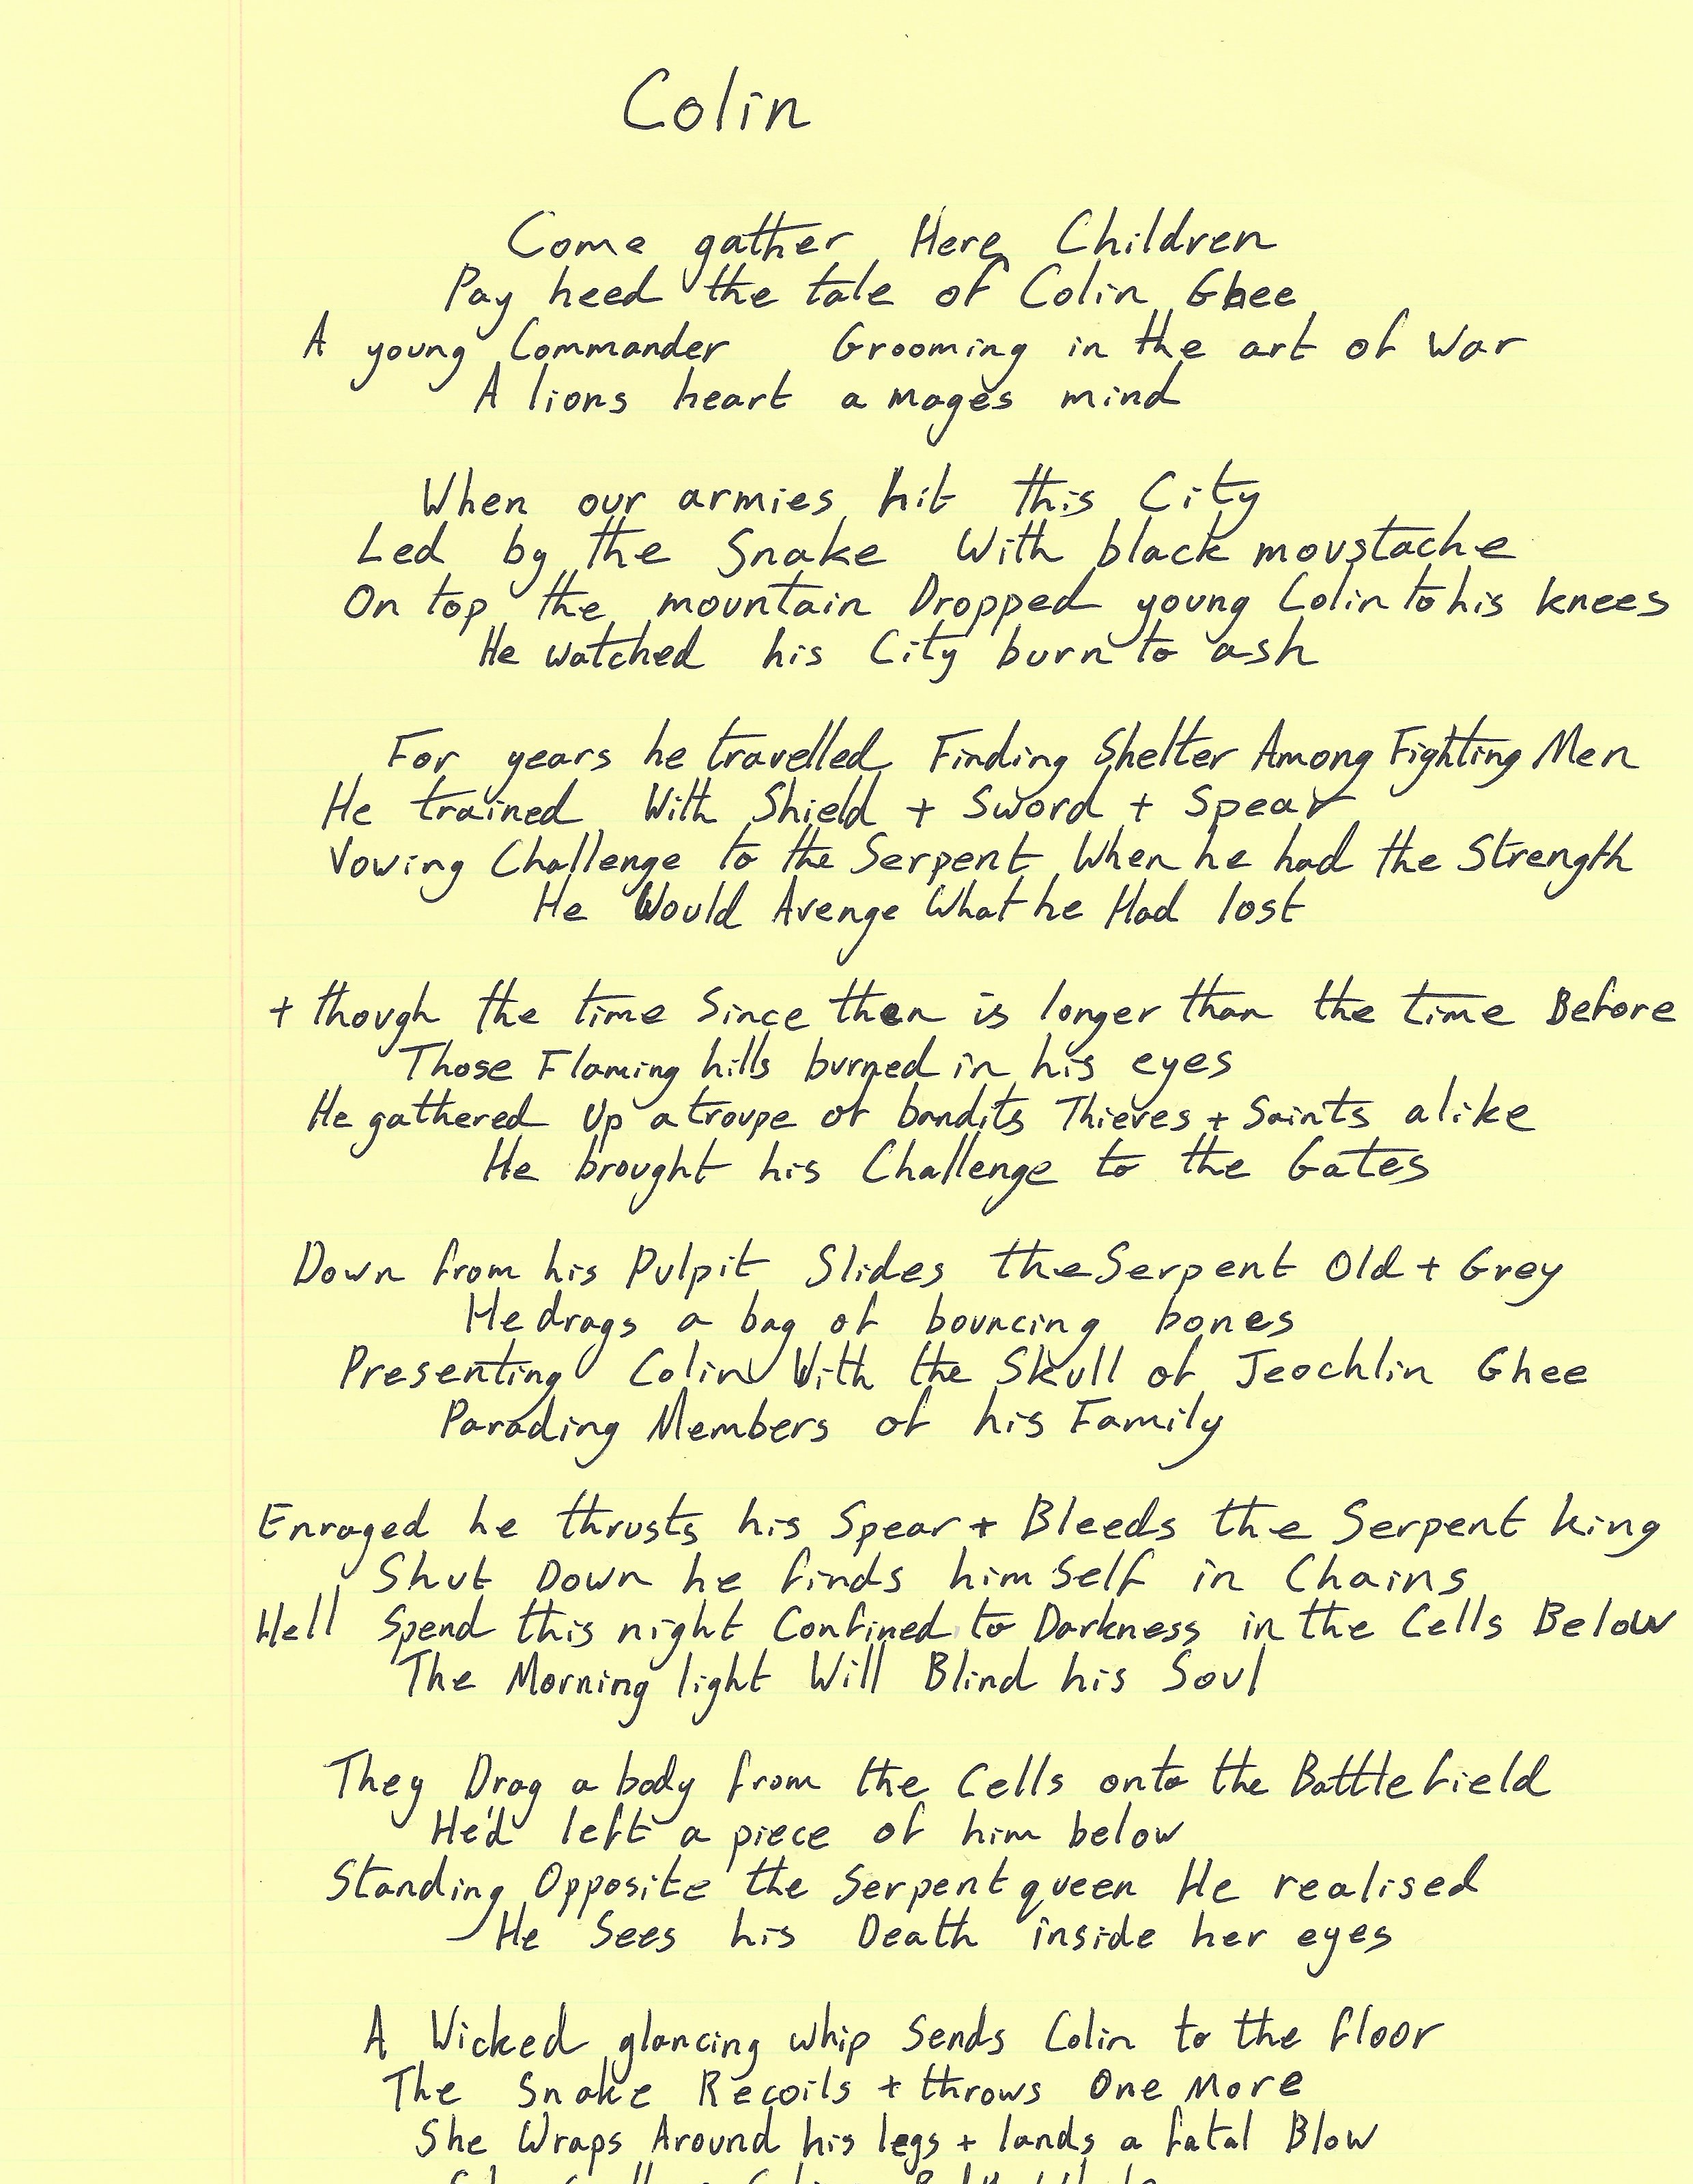 Colin
Come gather Here Children
Pay heed the tale of Colin Ghee
A young Commander Grooming in the art of War
A lions heart a mages mind
When our armies hit this City
Led by the Snake With black moustache
On top the mountain Dropped young Colin to his knees
He watched his City burn to ash
For years he travelled Finding Shelter Among Fighting Men
He trained With Shield + Sword + Spear
Vowing Challenge to the Serpent When he had the Strength
He Would Avenge What he Had lost
+ though the time Since then is longer than the time Before
Those Flaming hills burned in his eyes
He gathered Up a troupe of bandits Thieves + Saints alike
He brought his Challenge to the Gates
Down from his Pulpit Slides the Serpent Old + Grey
He drags a bag of bouncing bones
Presenting Colin With the Skull of Jeochlin Ghee
Parading Members of his Family
Enraged he thrusts his Spear + Bleeds the Serpent king
Shut Down he finds himself in Chains
Hell Spend this night Confined to Darkness in the Cells Below
The Morning light Will Blind his Soul
They Drag a body from the Cells onto the Battlefield
He'd left a piece of him below
Standing Opposite the Serpent queen He realised
He Sees his Death inside her eyes
A Wicked glancing whip Sends Colin to the floor
The Snake Recoils + throws One More
She Wraps Around his legs + lands a fatal Blow